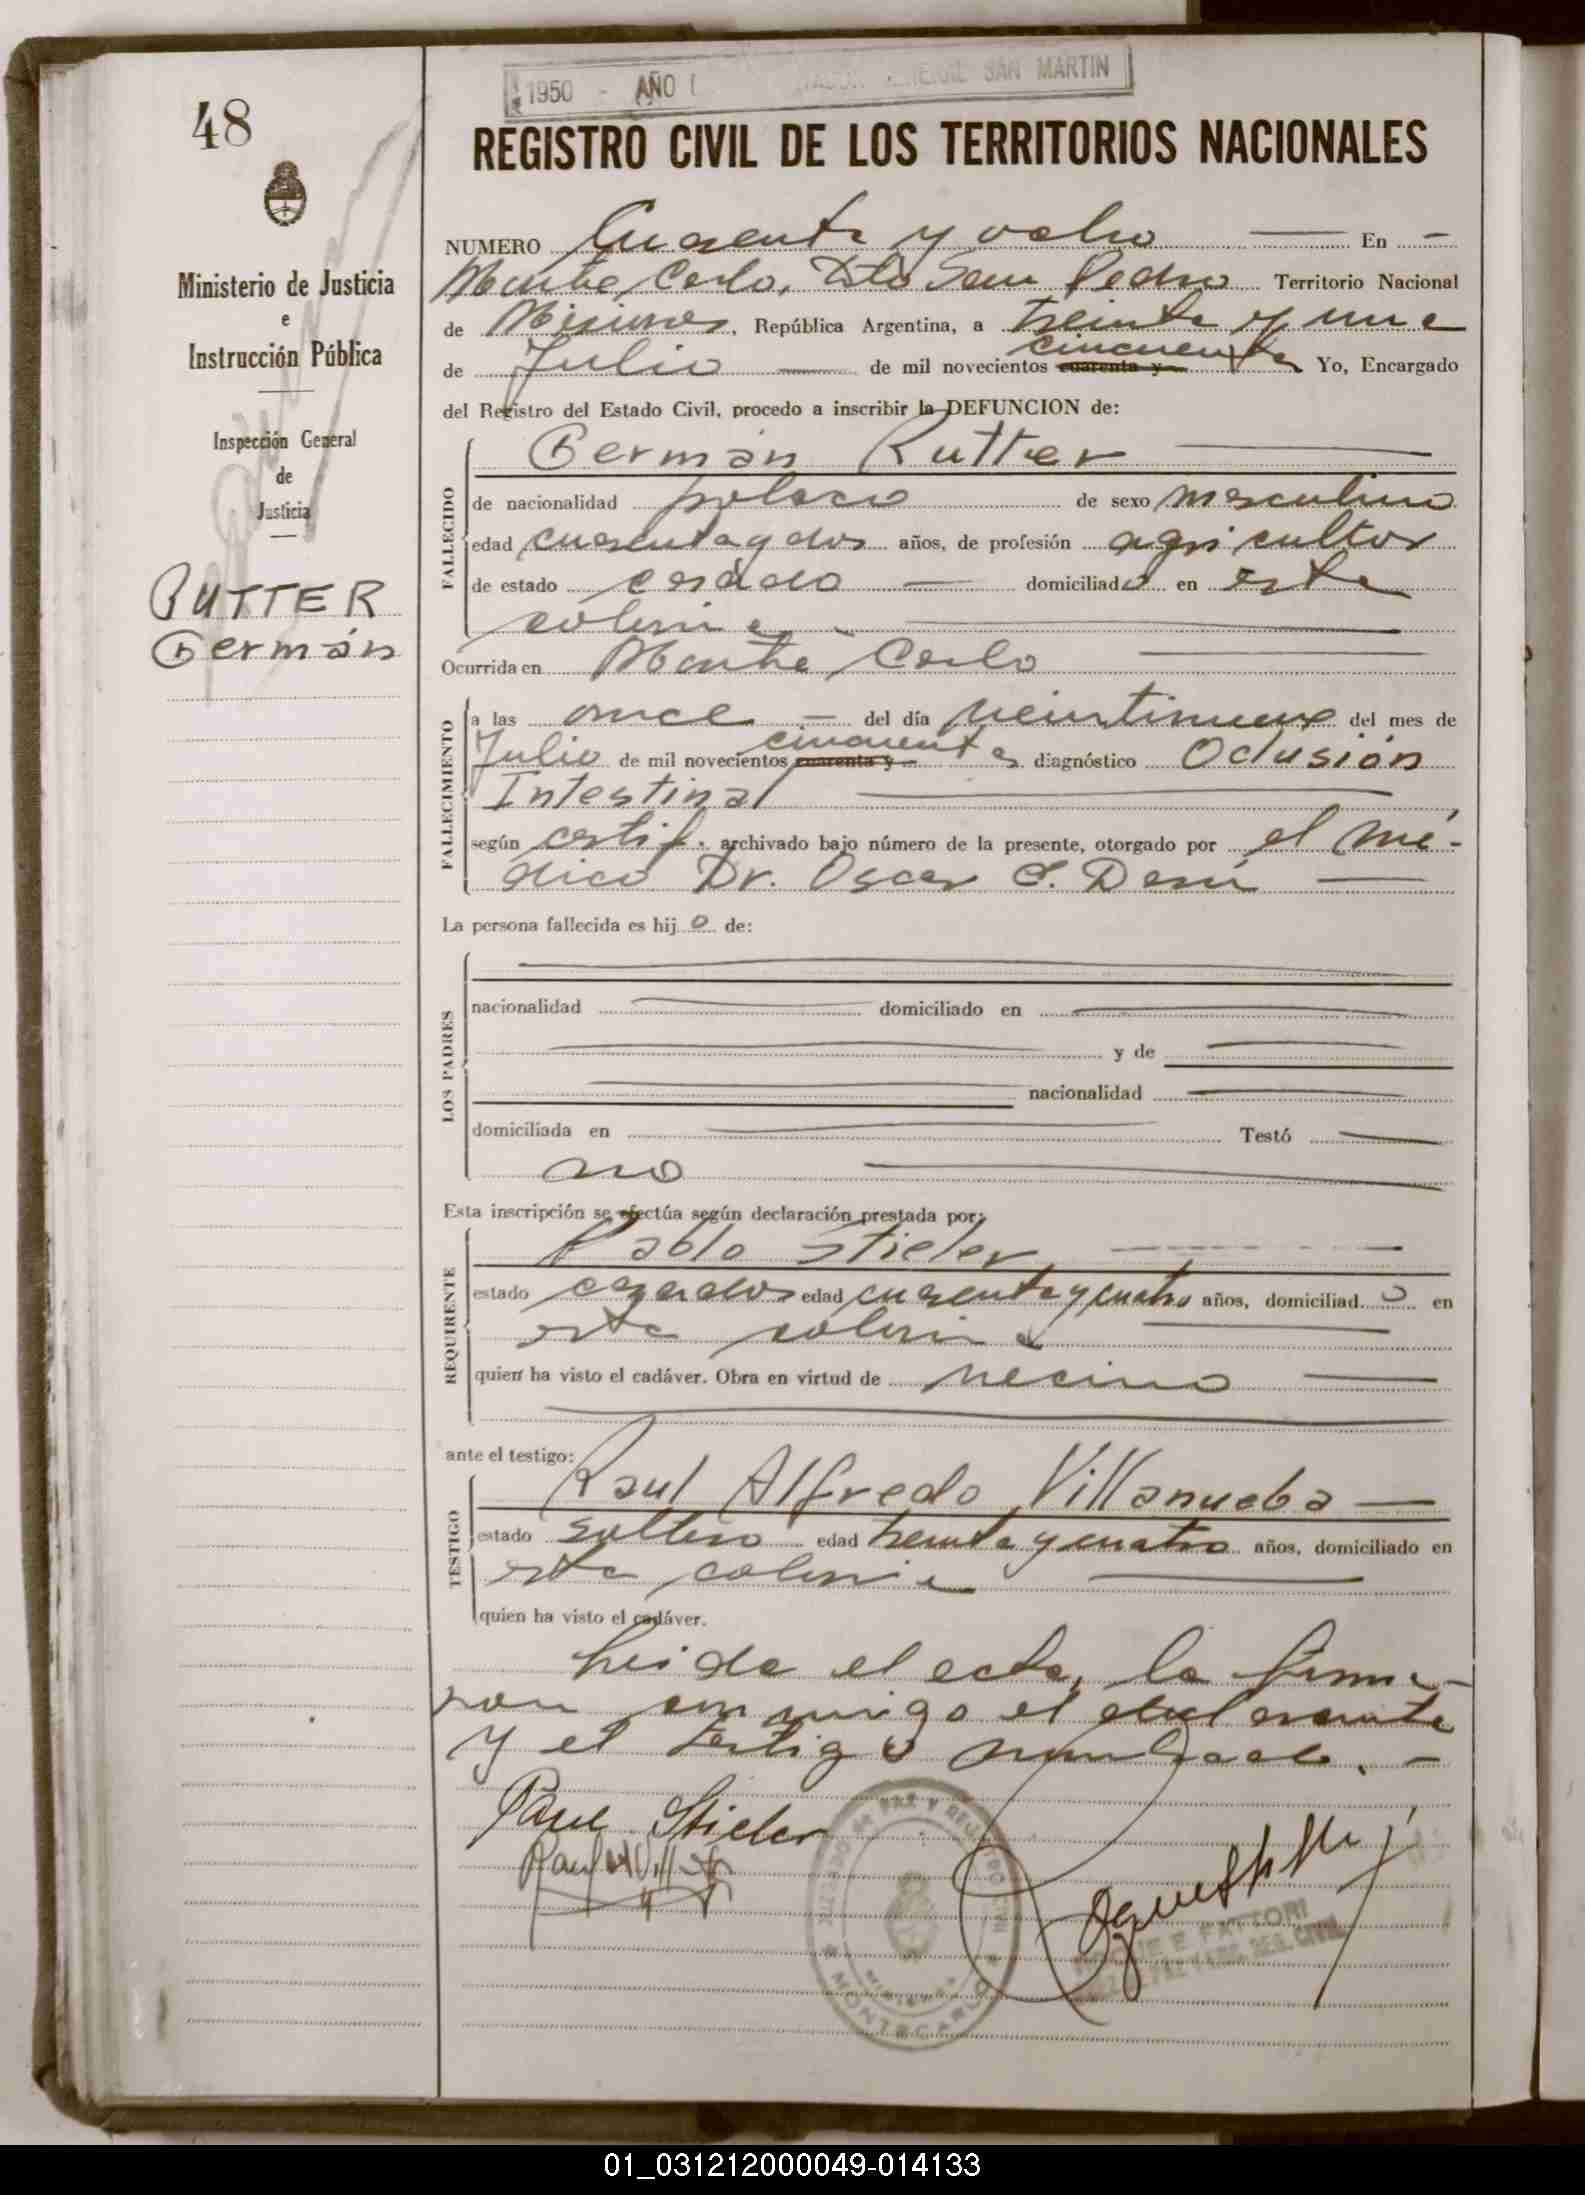 48
1950 - AÑO SAN MARTIN
REGISTRO CIVIL DE LOS TERRITORIOS NACIONALES
Ministerio de Justicia
e
Instrucción Pública
Inspección General
de
Justicia
RUTTER
Germán
NUMERO Cuarenta y ocho En
Monte Carlo, Dto San Pedro Territorio Nacional
de Misiones, República Argentina, a treinta y uno
cincuenta
de Julio de mil novecientos cuarenta y Yo, Encargado
del Registro del Estado Civil, procedo a inscribir la DEFUNCION de:
FALLECIDO
Germán Rutter
de nacionalidad polaco de sexo masculino
edad cuarenta y dos años, de profesión agricultor
de estado casado domiciliado en esta
colonia
Ocurrida en Monte Carlo
FALLECIMIENTO
a las once del día veintinueve del mes de
cincuenta
Julio de mil novecientos cuarenta y diagnóstico Oclusión
Intestinal
según certif. archivado bajo número de la presente, otorgado por el mé-
dico Dr. Oscar C.
La persona fallecida es hijo de:
LOS PADRES
nacionalidad domiciliado en
y de
nacionalidad
domiciliada en Testó
no
Esta inscripción se efectúa según declaración prestada por:
REQUIRENTE
Pablo Stieler
estado casados edad cuarenta y cuatro años, domiciliado en
esta colonia
quien ha visto el cadáver. Obra en virtud de vecino
ante el testigo:
TESTIGO
Raul Alfredo Villanueba
estado soltero edad treinta y cuatro años, domiciliado en
esta colonia
quien ha visto el cadáver.
Leida el acta, la firma-
ron conmigo el declarante
y el testigo nombrado.
Paul Stieler
JUZGADO DE PAZ Y REGISTRO CIVIL
MISIONES
MONTECARLO
E FATTORI
REG. CIVIL
01_031212000049-014133